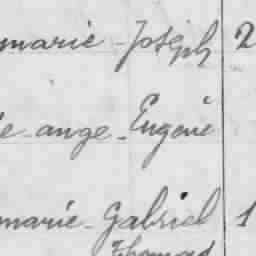 marie - Joseph 2
e - ange - Eugène
marie - Gabriel 1
Thomas